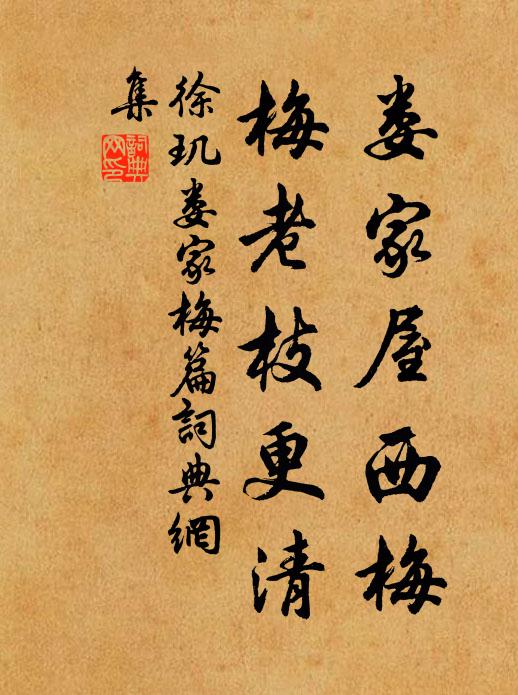 娄家屋西梅
梅老枝更清
徐玑娄家梅篇詞典網
集
詞典
网印